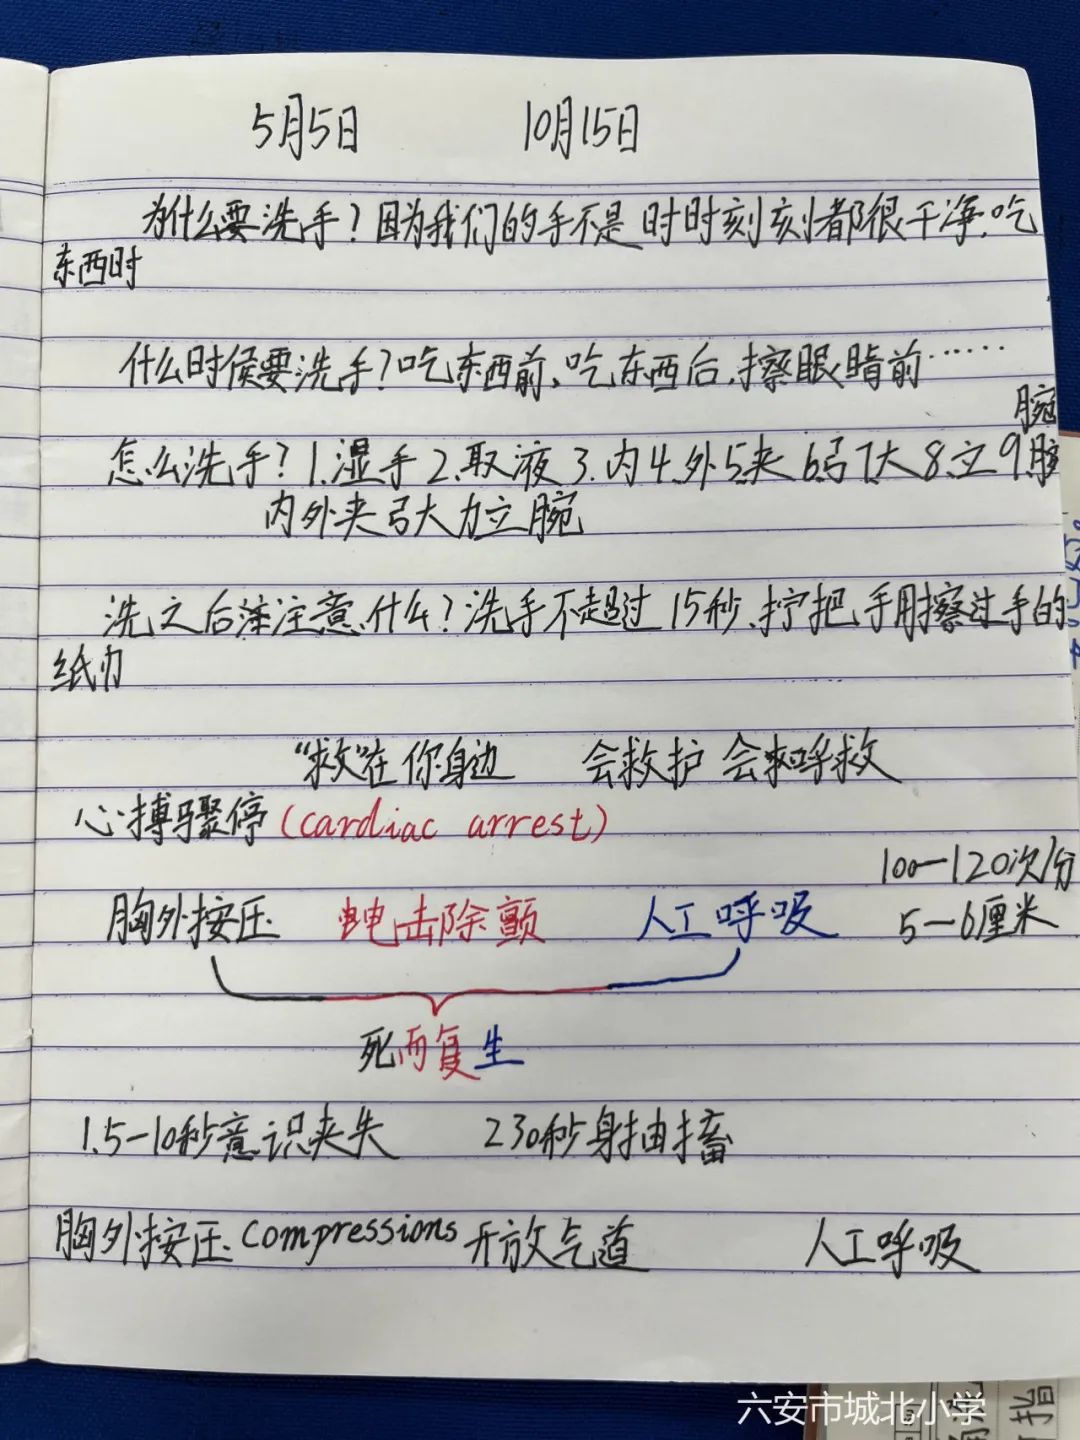 5月5日 10月15日
为什么要洗手？因为我们的手不是时时刻刻都很干净.吃
东西时
什么时候要洗手？吃东西前、吃东西后、擦眼睛前……
腕
怎么洗手？1.湿手2.取液3.内4.外5.夹6.弓7.大8.立9.腕
内外夹弓大力立腕
洗之后注意什么？洗手不超过15秒、拧把手用擦过手的
纸巾
“救”在你身边 会救护 会呼救
心搏骤停(cardiac arrest)
100—120次/分
胸外按压 电击除颤 人工呼吸 5—6厘米
死而复生
1.5—10秒意识失 230秒身抽搐
胸外按压 compressions 开放气道 人工呼吸
六安市城北小学